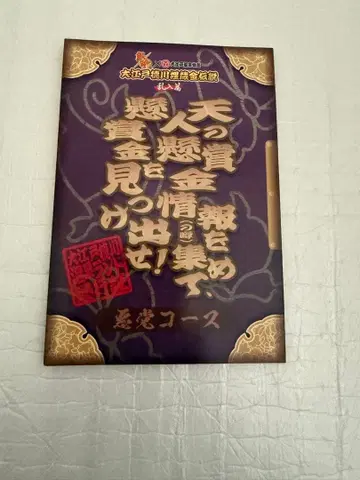 大江戸徳川埋蔵金伝説
乱入篇
天の賞報をめ
人懸金情(の噂)集て、
懸金を つ出せ!
賞 見 け
悪党コース